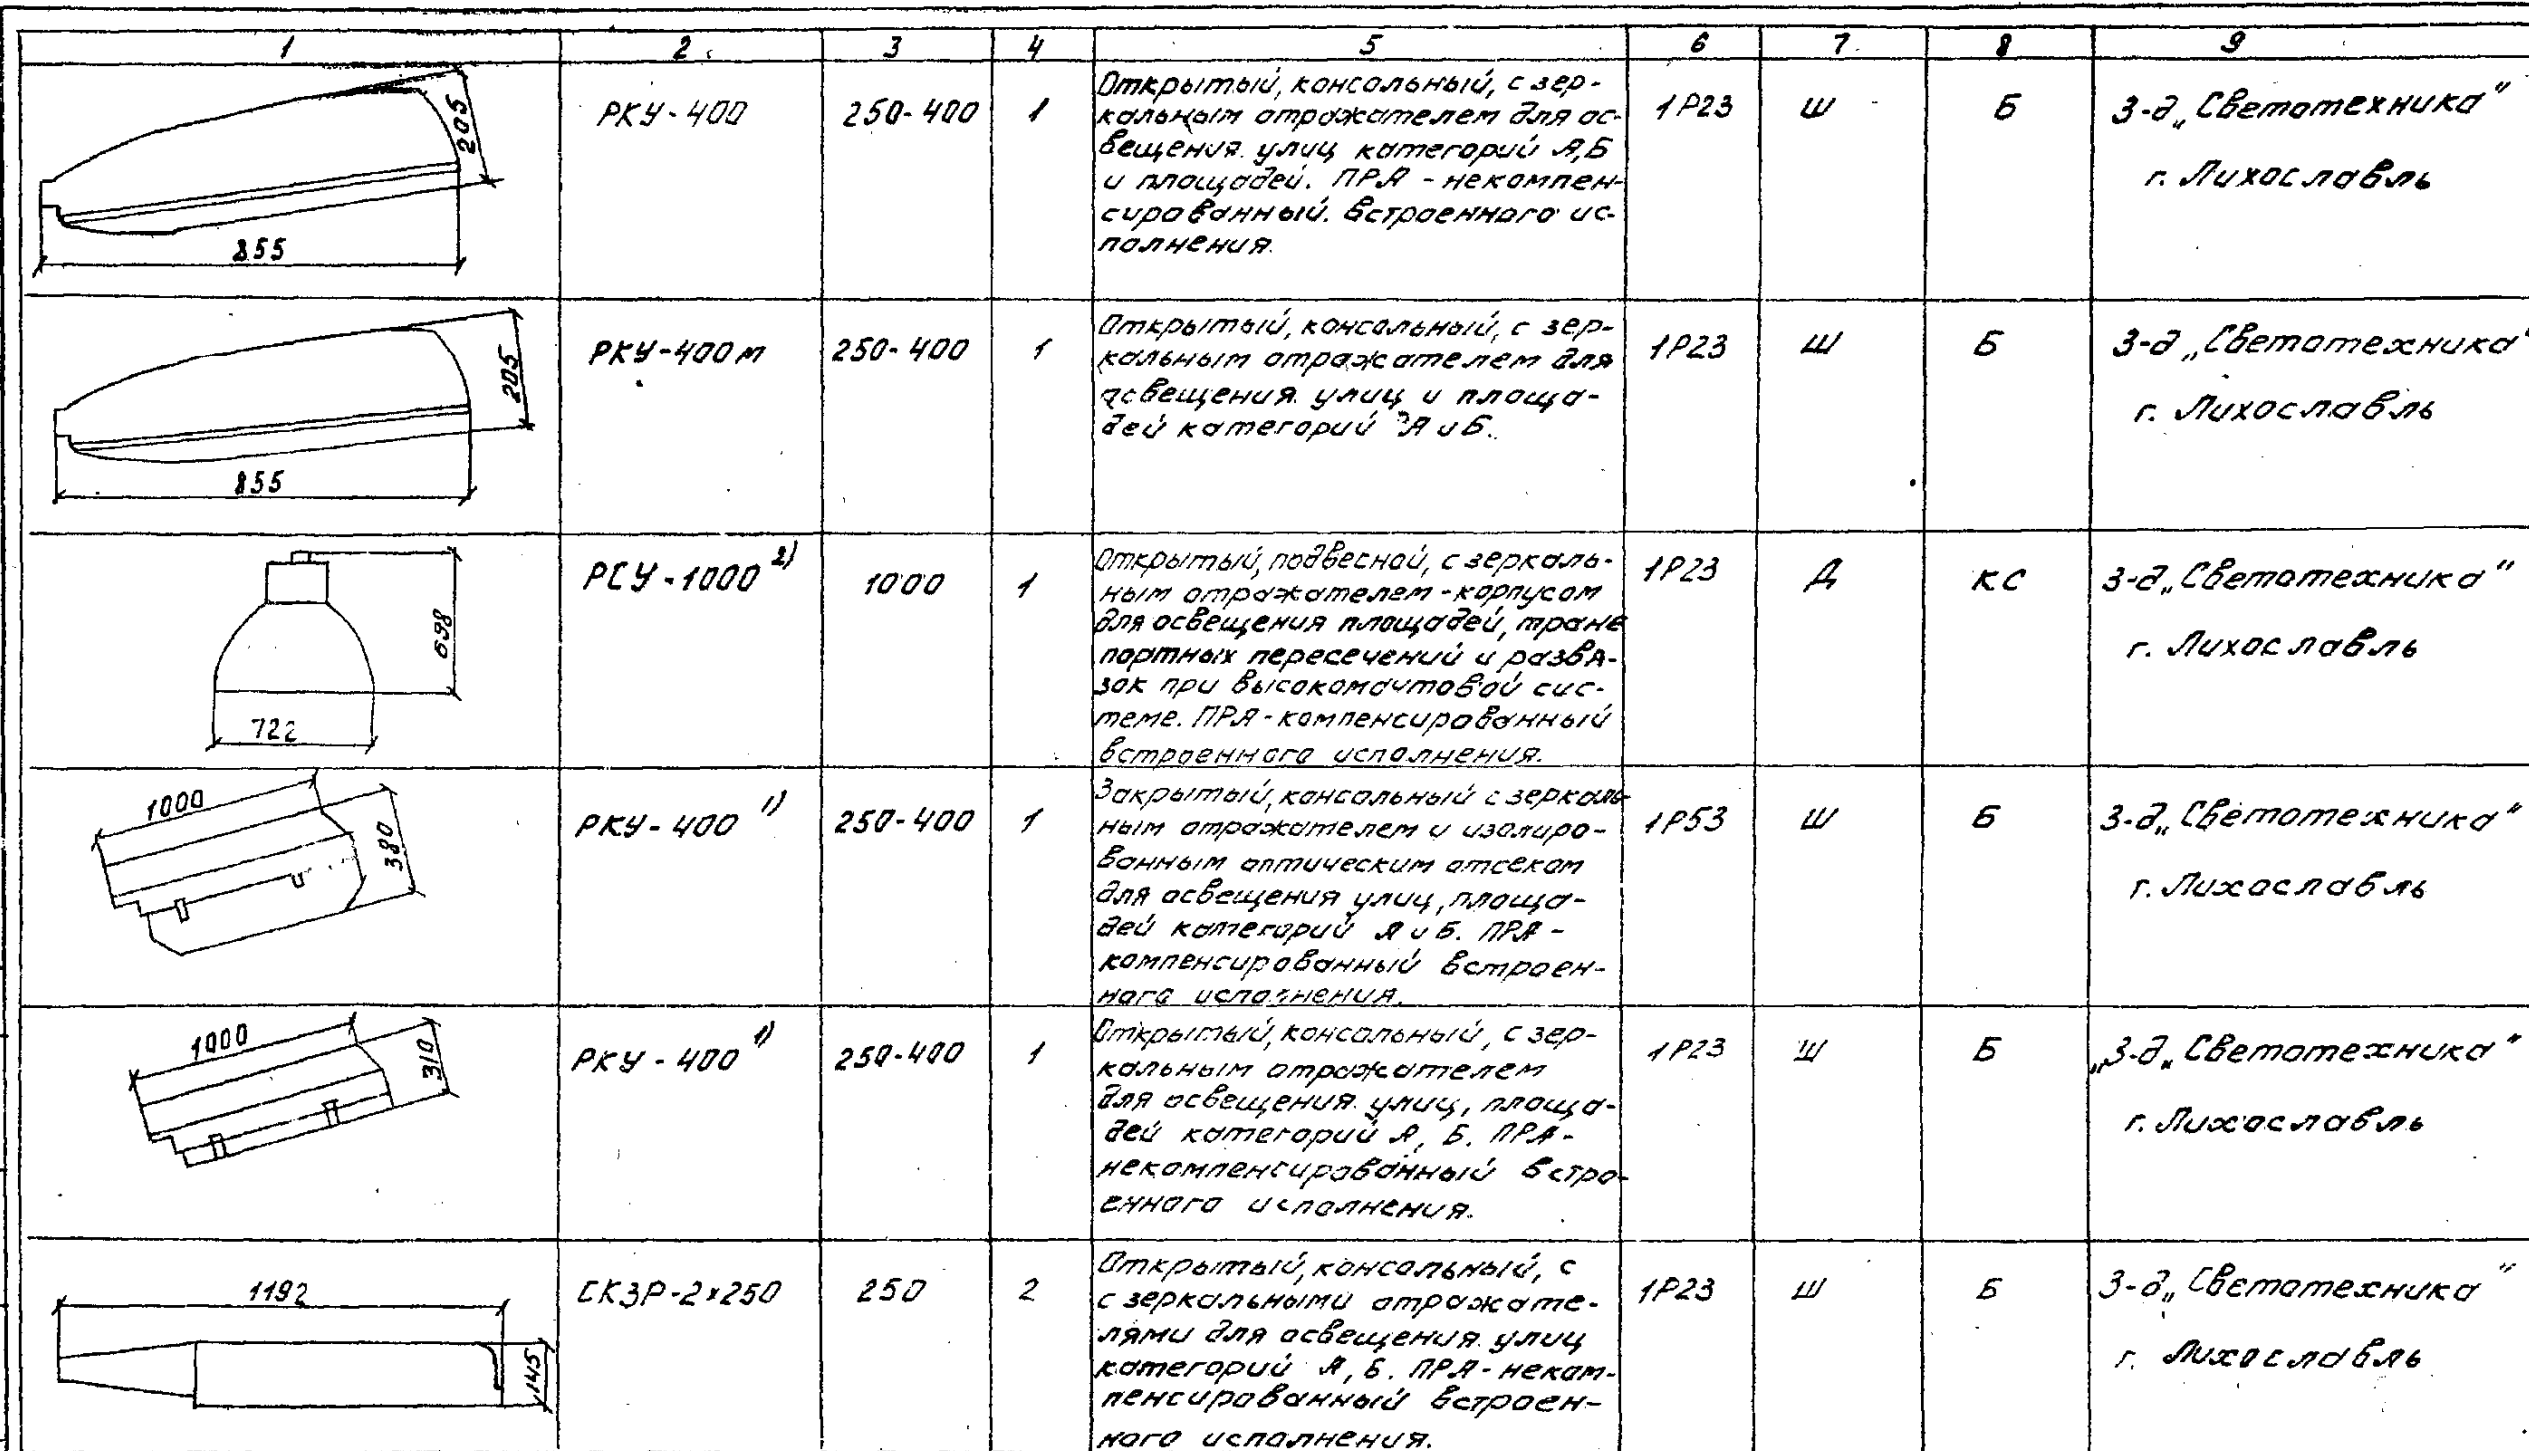 1 2 3 4 5 6 7 8 9
205
855
РКУ-400
250-400
1
Открытый, консольный, с зер-
кальным отражателем для ос-
вещения улиц категорий А,Б
и площадей. ПРА - некомпен-
сированный встроенного ис-
полнения.
1Р23
Ш
Б
З-д „Светотехника"
г. Лихославль
205
855
РКУ-400м
250-400
1
Открытый, консольный, с зер-
кальным отражателем для
освещения улиц и площа-
дей категорий А и Б.
1Р23
Ш
Б
З-д „Светотехника"
г. Лихославль
698
722
РСУ-1000 2)
1000
1
Открытый, подвесной, с зеркаль-
ным отражателем-корпусом
для освещения площадей, транс
портных пересечений и развя-
зок при высокомачтовой сис-
теме. ПРА-компенсированный
встроенного исполнения.
1Р23
Д
КС
З-д „Светотехника"
г. Лихославль
1000
380
РКУ-400 1)
250-400
1
Закрытый, консольный с зеркаль-
ным отражателем и изолиро-
ванным оптическим отсеком
для освещения улиц, площа-
дей категорий А и Б. ПРА -
компенсированный встроен-
ного исполнения.
1Р53
Ш
Б
З-д „Светотехника"
г. Лихославль
1000
310
РКУ-400 1)
250-400
1
Открытый, консольный, с зер-
кальным отражателем
для освещения улиц, площа-
дей категорий А, Б. ПРА-
некомпенсированный встро-
енного исполнения.
1Р23
Ш
Б
„З-д „Светотехника"
г. Лихославль
1192
145
СКЗР-2х250
250
2
Открытый, консольный, с
с зеркальными отражате-
лями для освещения улиц
категорий А, Б. ПРА-неком-
пенсированный встроен-
ного исполнения.
1Р23
Ш
Б
З-д „Светотехника"
г. Лихославль